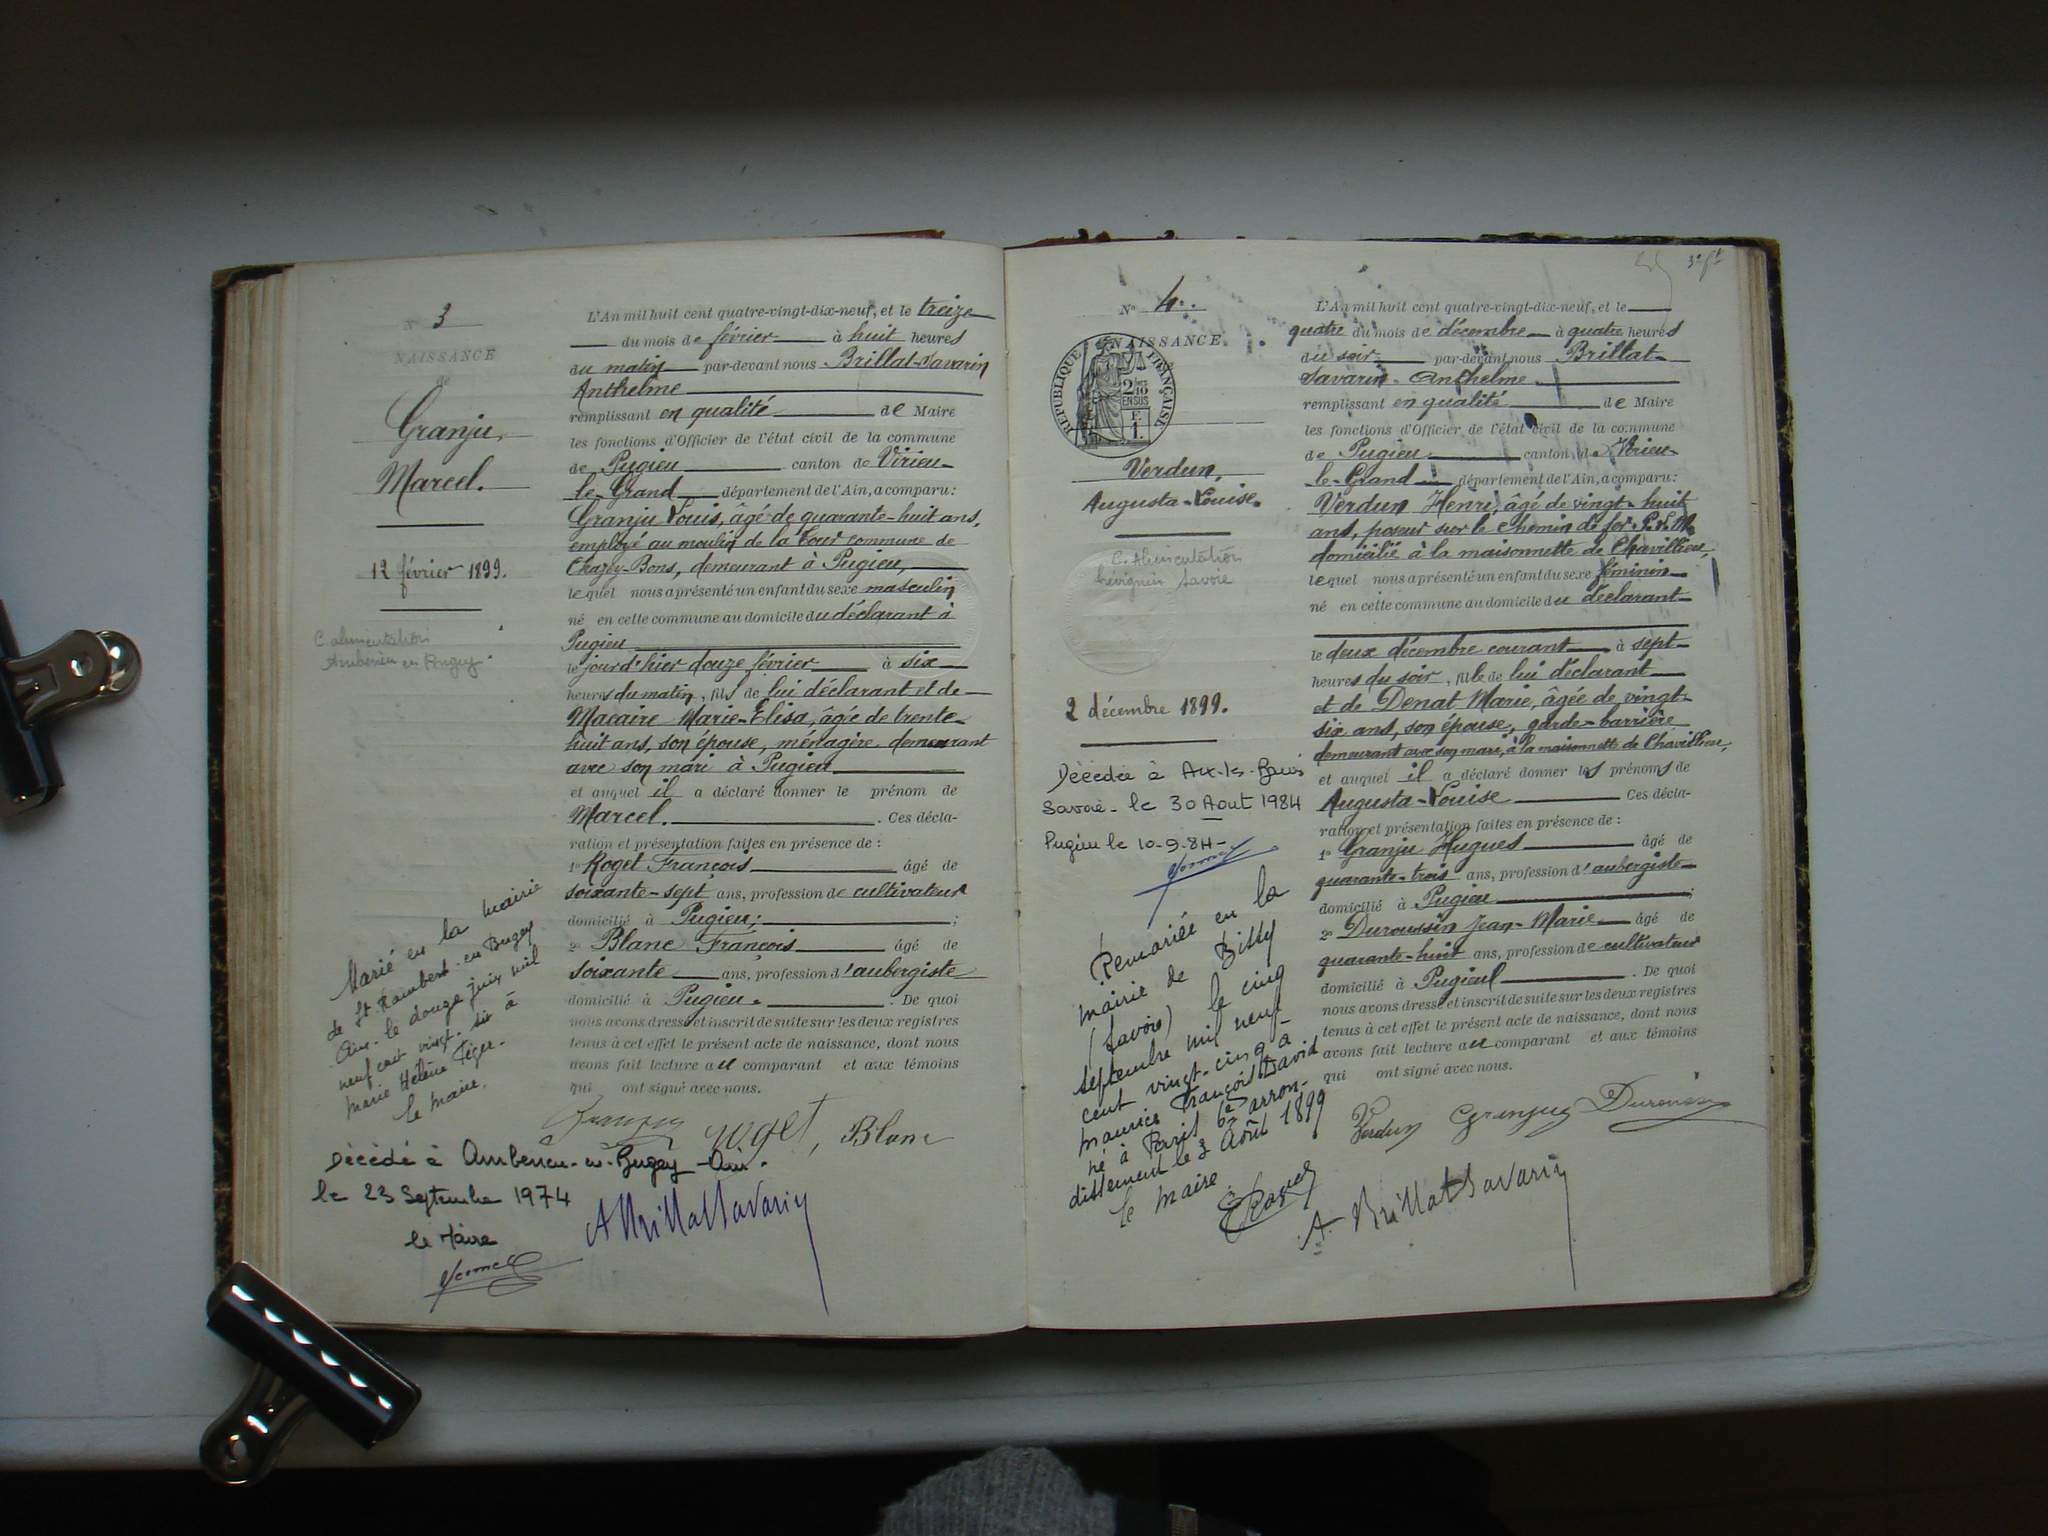 N° 3
NAISSANCE
de
Granju,
Marcel.
12 février 1899.
C. alimentation
Ambérieu en Bugey.
Marié en la mairie
de St. Rambert-en-Bugey
Ain. le douze juin mil
neuf cent vingt-six à
Marie Hélène Tiger.
le maire.
Décédé à Ambérieu-en-Bugey-Ain.
le 23 Septembre 1974
le Maire
L'An mil huit cent quatre-vingt-dix-neuf, et le treize
du mois de février à huit heures
du matin par-devant nous Brillat-Savarin
Anthelme
remplissant en qualité de Maire
les fonctions d'Officier de l'état civil de la commune
de Pugieu canton de Virieu-
le-Grand département de l'Ain, a comparu:
Granju Louis, âgé de quarante-huit ans,
employé au moulin de la Tour commune de
Chazey-Bons, demeurant à Pugieu,
lequel nous a présenté un enfant du sexe masculin
né en cette commune au domicile du déclarant à
Pugieu
le jour d'hier douze février à six
heures du matin, fils de lui déclarant et de
Macaire Marie-Elisa, âgée de trente-
huit ans, son épouse, ménagère demeurant
avec son mari à Pugieu
et auquel il a déclaré donner le prénom de
Marcel. . Ces décla-
ration et présentation faites en présence de :
1° Roget François âgé de
soixante-sept ans, profession de cultivateur
domicilié à Pugieu; ;
2° Blanc François âgé de
soixante ans, profession d'aubergiste
domicilié à Pugieu. . De quoi
nous avons dressé et inscrit de suite sur les deux registres
tenus à cet effet le présent acte de naissance, dont nous
avons fait lecture au comparant et aux témoins
qui ont signé avec nous.
Blanc
A Brillat Savarin
3e ft
N° 4.
NAISSANCE
RÉPUBLIQUE FRANÇAISE
2/10 EN SUS
Verdun,
Augusta-Louise.
C. Alimentation
Savoie
2 décembre 1899.
Décédée à Aix-les-Bains
Savoie - le 30 Aout 1984
Pugieu le 10-9-84-
Remariée en la
mairie de Bissy
(Savoie) le cinq
septembre mil neuf
cent vingt-cinq à
Maurice François David
né à Paris 6e arron-
dissement le 3 Août 1899
le maire.
L'An mil huit cent quatre-vingt-dix-neuf, et le
quatre du mois de décembre à quatre heures
du soir par-devant nous Brillat-
Savarin Anthelme
remplissant en qualité de Maire
les fonctions d'Officier de l'état civil de la commune
de Pugieu canton de Virieu-
le-Grand département de l'Ain, a comparu:
Verdun Henri, âgé de vingt-huit
ans, poseur sur le chemin de fer P.L.M.
domicilié à la maisonnette de Chavillieu,
lequel nous a présenté un enfant du sexe féminin
né en cette commune au domicile du déclarant
le deux décembre courant à sept
heures du soir, fille de lui déclarant
et de Denat Marie, âgée de vingt-
six ans, son épouse, garde-barrière
demeurant avec son mari, à la maisonnette de Chavillieu,
et auquel il a déclaré donner les prénoms de
Augusta-Louise Ces décla-
ration et présentation faites en présence de :
1° Granju Hugues âgé de
quarante-trois ans, profession d'aubergiste
domicilié à Pugieu ;
2° Duroussin Jean-Marie âgé de
quarante-huit ans, profession de cultivateur
domicilié à Pugieu . De quoi
nous avons dressé et inscrit de suite sur les deux registres
tenus à cet effet le présent acte de naissance, dont nous
avons fait lecture au comparant et aux témoins
qui ont signé avec nous.
Verdun Granjug Duroussin
A. Brillat Savarin